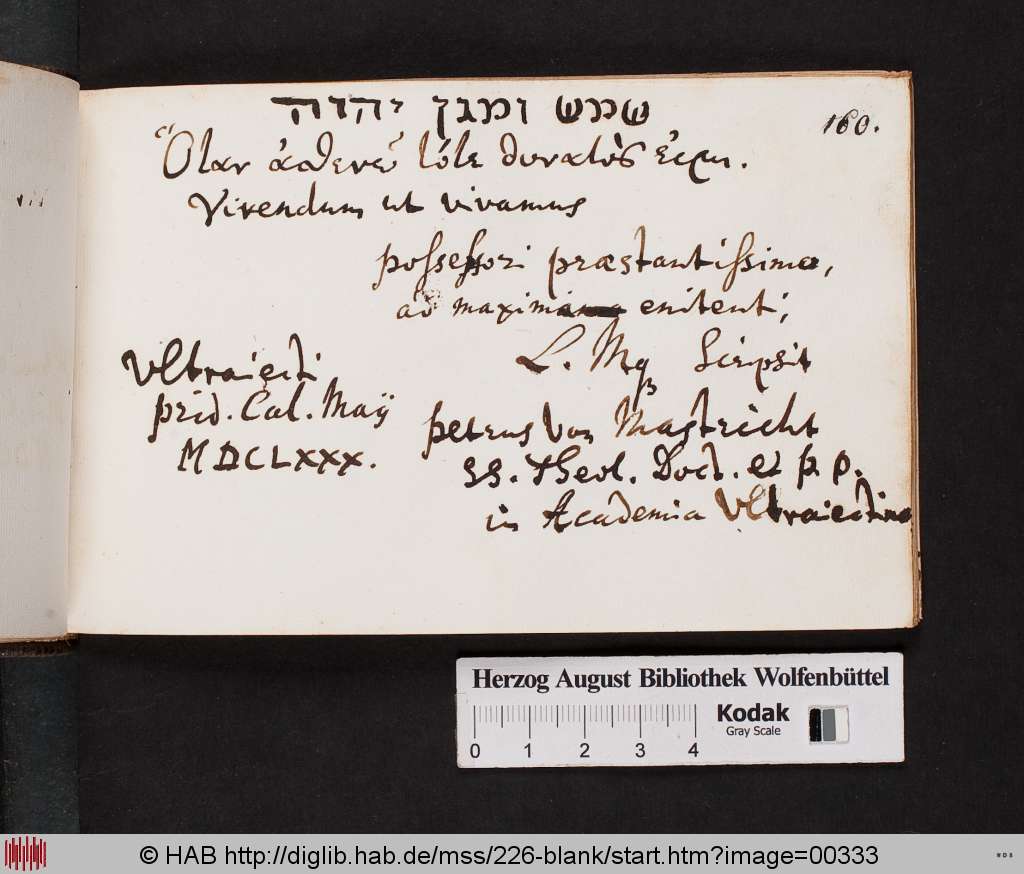 שמש ומגן יהוה
160.
Ὅταν ἀσθενῶ τότε δυνατὸς εἰμι.
Vivendum ut vivamus
possessori præstantissimo,
ad maxima enitenti,
L. Mq Scripsit
Ultraiecti
prid. Cal. Maÿ
MDCLXXX.
petrus von Mastricht
SS. Theol. Doct. et p. p.
in Academia Ultraiectina
Herzog August Bibliothek Wolfenbüttel
0 1 2 3 4
Kodak
Gray Scale
© HAB http://diglib.hab.de/mss/226-blank/start.htm?image=00333